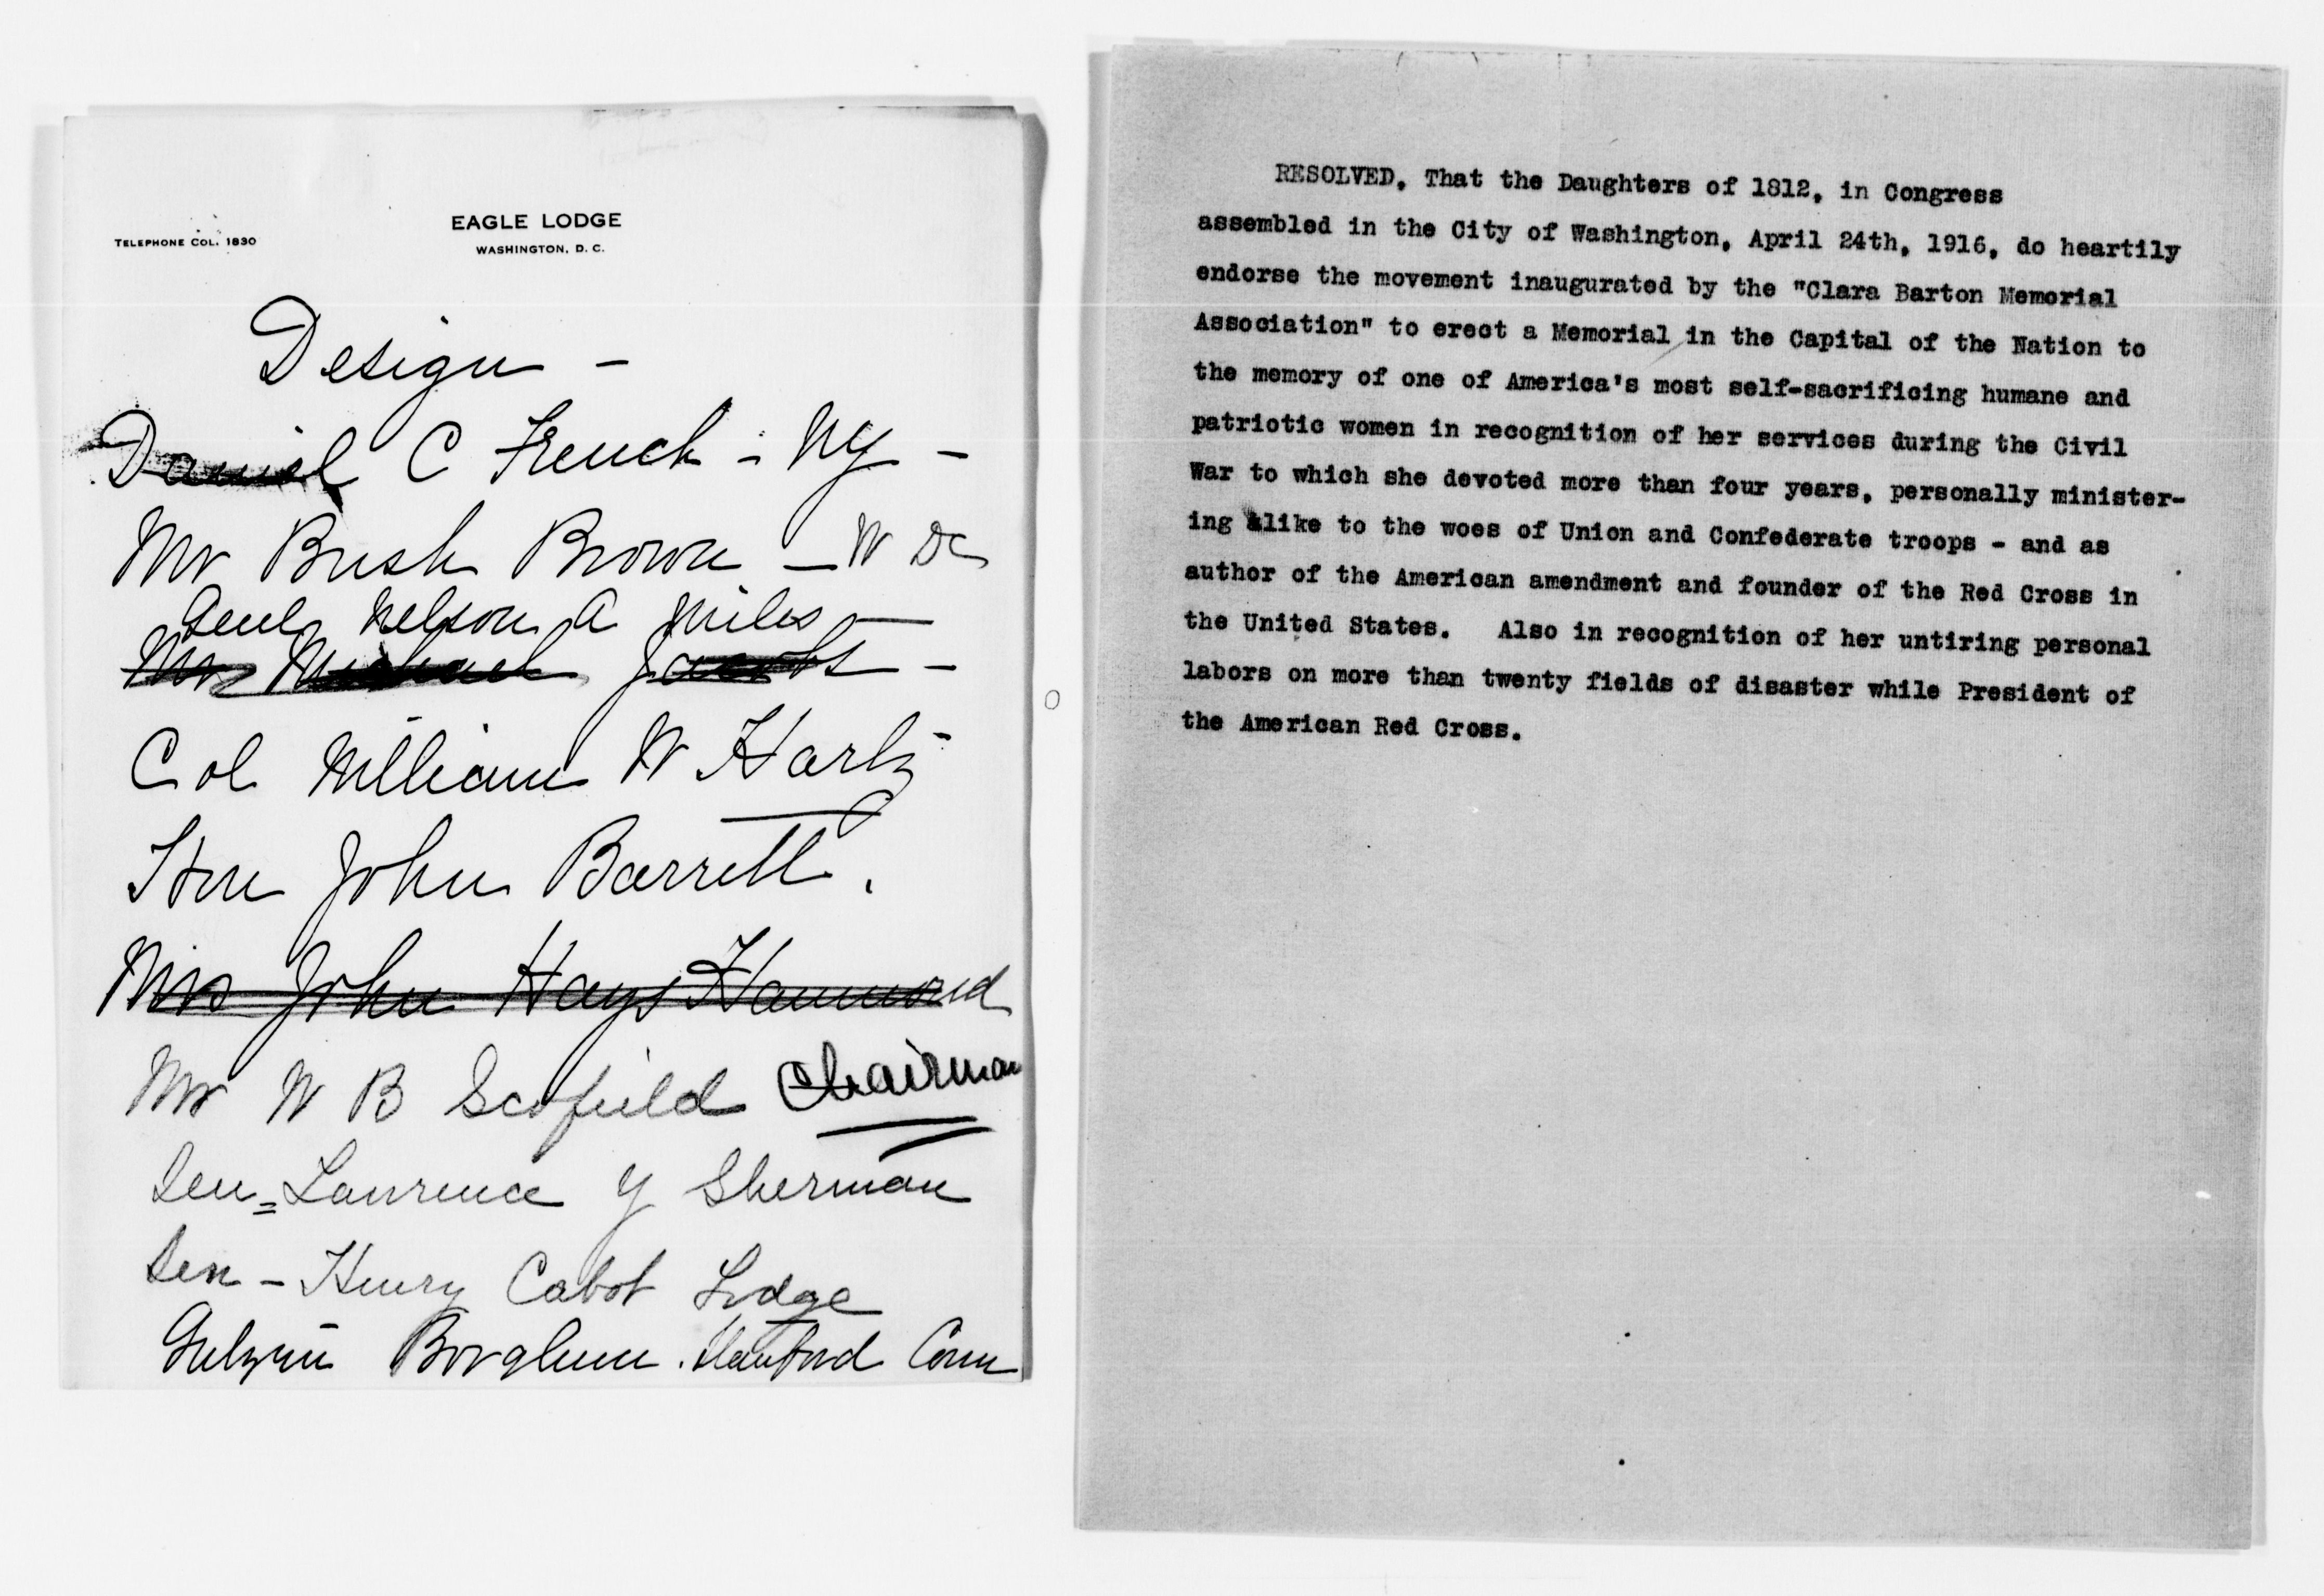 TELEPHONE COL. 1830
EAGLE LODGE
WASHINGTON, D. C.
Design -
Daniel C French - NY -
Mr Bush Brown - W DC
Genl Nelson A Miles -
Mr Michael Jacobs -
Col William W Harts
Hon John Barrett.
Mrs John Hays Hammond
Mr W B Scofield Chairman
Sen = Lawrence Y Sherman
Sen - Henry Cabot Lodge
Borglum. Conn
RESOLVED, That the Daughters of 1812, in Congress
assembled in the City of Washington, April 24th, 1916, do heartily
endorse the movement inaugurated by the "Clara Barton Memorial
Association" to erect a Memorial in the Capital of the Nation to
the memory of one of America's most self-sacrificing humane and
patriotic women in recognition of her services during the Civil
War to which she devoted more than four years, personally minister-
ing alike to the woes of Union and Confederate troops - and as
author of the American amendment and founder of the Red Cross in
the United States. Also in recognition of her untiring personal
labors on more than twenty fields of disaster while President of
the American Red Cross.